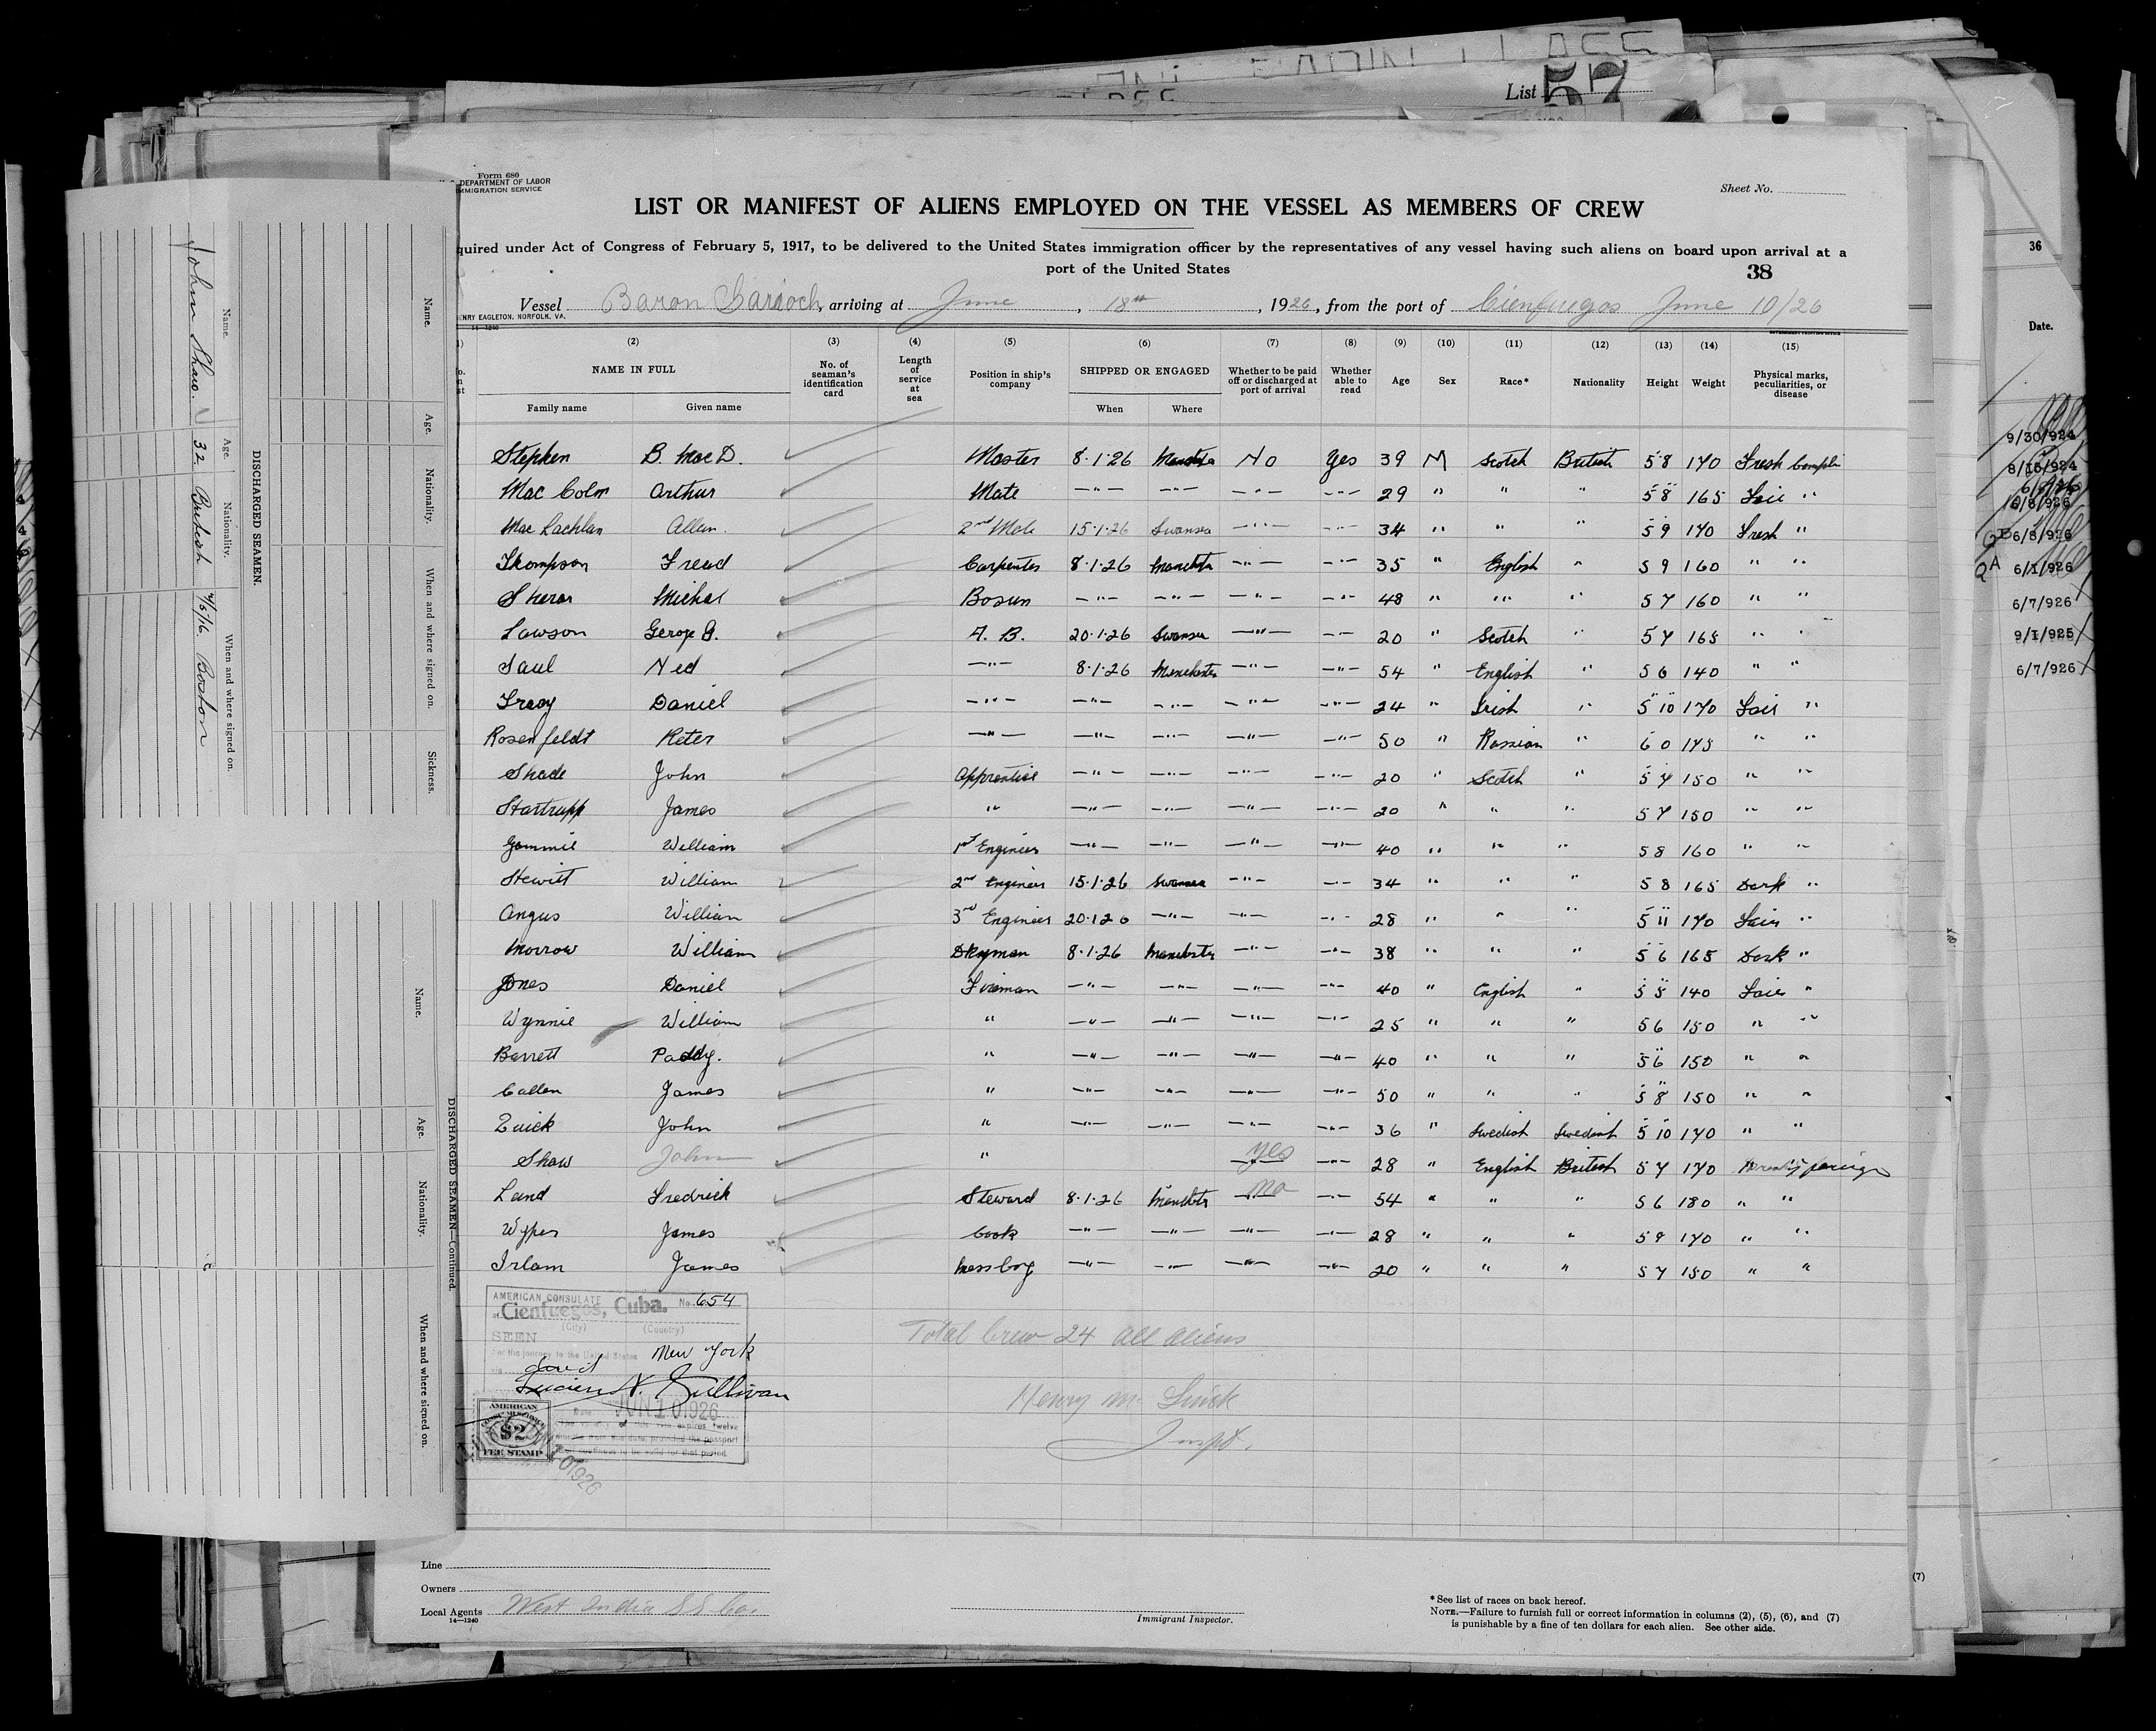 List 57
Form 686
DEPARTMENT OF LABOR
IMMIGRATION SERVICE
Sheet No.
LIST OR MANIFEST OF ALIENS EMPLOYED ON THE VESSEL AS MEMBERS OF CREW
quired under Act of Congress of February 5, 1917, to be delivered to the United States immigration officer by the representatives of any vessel having such aliens on board upon arrival at a
port of the United States
38
Vessel Baron Garioch, arriving at June, 18th, 1926, from the port of Cienfuegos June 10/26
HENRY EAGLETON, NORFOLK, VA.
14—1240
(2) (3) (4) (5) (6) (7) (8) (9) (10) (11) (12) (13) (14) (15)
NAME IN FULL No. of seaman's identification card Length of service at sea Position in ship's company SHIPPED OR ENGAGED Whether to be paid off or discharged at port of arrival Whether able to read Age Sex Race* Nationality Height Weight Physical marks, peculiarities, or disease
Family name Given name When Where
Stephen B. Mac D. Master 8.1.26 No Yes 39 M Scotch British 5 8 170 Fresh Compl
Mac Colm Arthur Mate —"— —"— —"— —"— 29 " " " 5 8 165 Fair "
Mac Lachlan Allan 2nd Mate 15.1.26 Swansea —"— —"— 34 " " " 5 9 170 Fresh "
Thompson Fread Carpenter 8.1.26 Manchster —"— —"— 35 " English " 5 9 160 " "
Sherar Michal Bosun —"— —"— —"— —"— 48 " " " 5 7 160 " "
Lawson Gerorge G. A. B. 20.1.26 Swansea —"— —"— 20 " Scotch " 5 7 165 " "
Saul Ned —"— 8.1.26 Manchester —"— —"— 54 " English " 5 6 140 " "
Tracy Daniel —"— —"— —"— —"— —"— 24 " Irish " 5 10 170 Fair "
Rosenfeldt Peter —"— —"— —"— —"— —"— 50 " Russian " 6 0 175 " "
Shade John Apprentice —"— —"— —"— —"— 20 " Scotch " 5 7 150 " "
Startrupp James " —"— —"— —"— —"— 20 " " " 5 7 150 " "
Gammie William 1st Engineer —"— —"— —"— —"— 40 " " " 5 8 160 " "
Stewirt William 2nd Engineer 15.1.26 Swansea —"— —"— 34 " " " 5 8 165 Dark "
Angus William 3rd Engineer 20.1.26 —"— —"— —"— 28 " " " 5 11 170 Fair "
Morrow William Dkyman 8.1.26 Manchster —"— —"— 38 " " " 5 6 165 Dark "
Jones Daniel Fireman —"— —"— —"— —"— 40 " English " 5 5 140 Fair "
Wynnie William " —"— —"— —"— —"— 25 " " " 5 6 150 " "
Barrett Paddy. " —"— —"— —"— —"— 40 " " " 5 6 150 " "
Callen James " —"— —"— —"— —"— 50 " " " 5 8 150 " "
Zuick John " —"— —"— —"— —"— 36 " Swedish Swedish 5 10 170 " "
Shaw John " yes —"— 28 " English British 5 7 170
Land Fredrick Steward 8.1.26 Manchster no —"— 54 " " " 5 6 180 " "
Wyper James Cook —"— —"— —"— —"— 28 " " " 5 9 170 " "
Irlam James Mess boy —"— —"— —"— —"— 20 " " " 5 7 150 " "
AMERICAN CONSULATE No. 654
at Cienfuegos, Cuba.
(City) (Country)
SEEN
For the journey to the United States New York
via direct
Lucien N. Sullivan
Date JUN 10 1926
AMERICAN
$2
FEE STAMP
Total Crew 24 all aliens
Henry M.
Inspt.
Line
Owners
Local Agents West India SS Co.
14—1240
Immigrant Inspector.
*See list of races on back hereof.
NOTE.—Failure to furnish full or correct information in columns (2), (5), (6), and (7)
is punishable by a fine of ten dollars for each alien. See other side.
DISCHARGED SEAMEN.
Name. Age. Nationality. When and where signed on.
John Shaw. 32 British 4/5/16. Boston
Name. Age. Nationality. When and where signed on. Sickness.
DISCHARGED SEAMEN—Continued.
Name. Age. Nationality. When and where signed on.
36
Date.
9/30/924
8/15/924
6/8/926
6/8/926
6/1/926
6/7/926
9/1/925
6/7/926
(7)